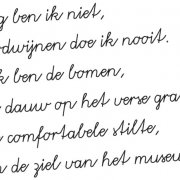 g ben ik niet,
dwijnen doe ik nooit.
k ben de bomen,
dauw op het verse gra
comfortabele stilte,
n de ziel van het museu